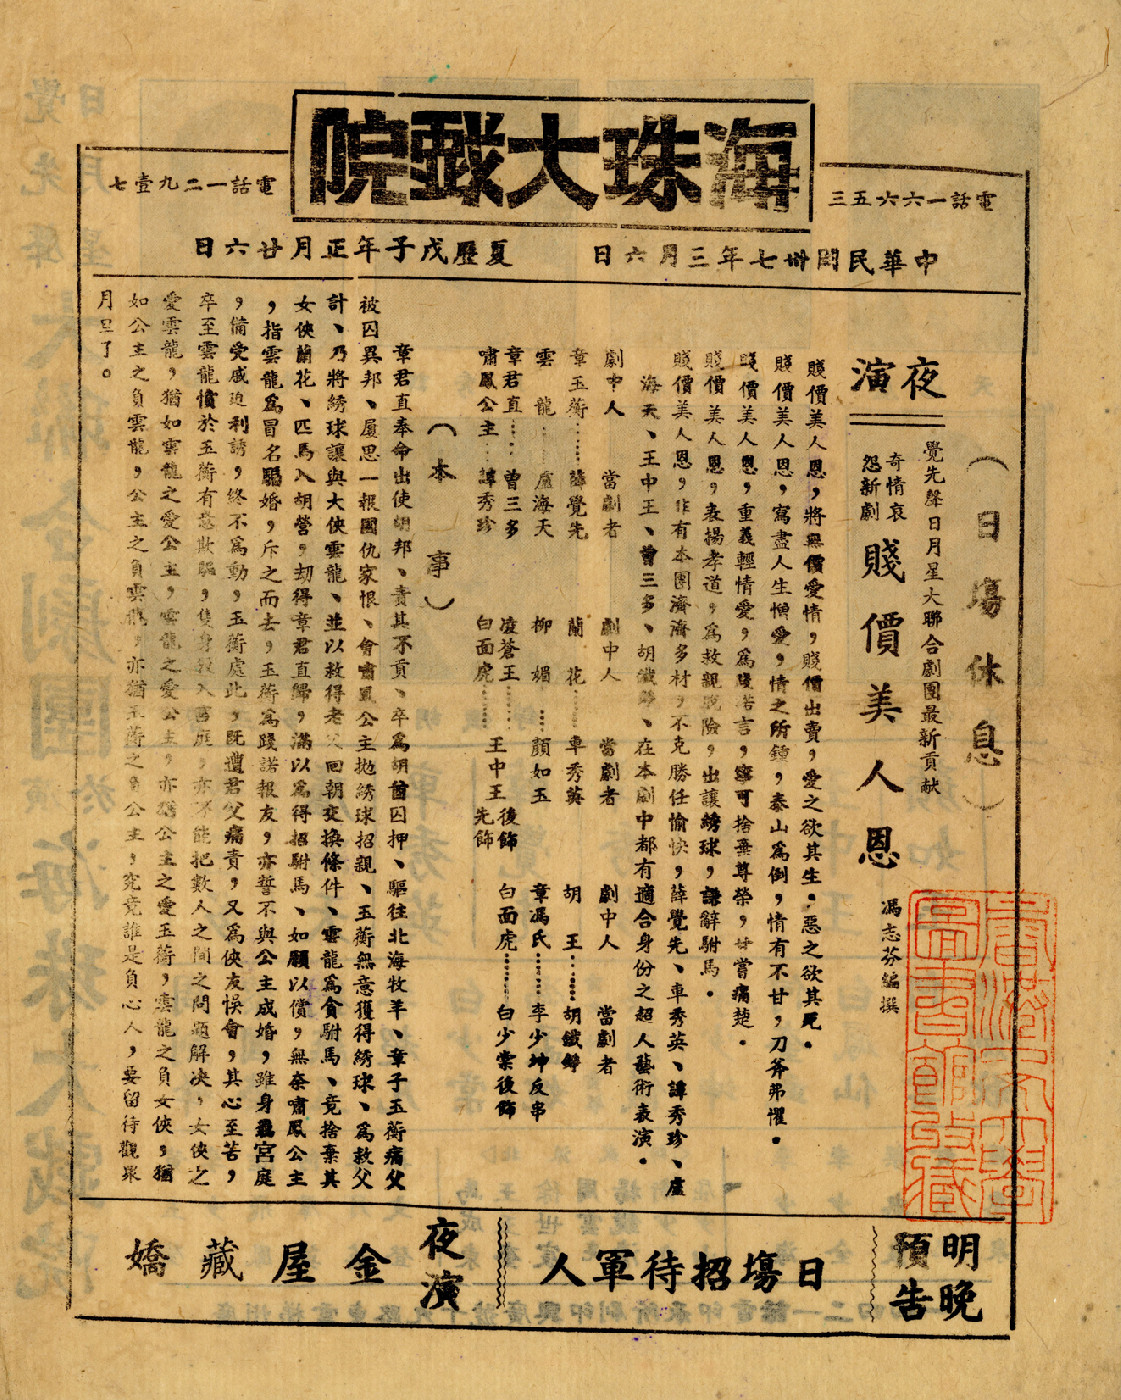 海珠大戲院
電話一六六五三
電話一二九壹七
中華民國卅七年三月六日
夏歷戊子年正月廿六日
（日塲休息）
夜演
覺先聲日月星大聯合劇團最新貢献
奇情哀怨新劇
賤價美人恩
馮志芬編撰
賤價美人恩，將無價愛情，賤價出賣，愛之欲其生。惡之欲其死。
賤價美人恩，寫盡人生憎愛，情之所鍾，泰山為倒，情有不甘，刀斧弗懼。
賤價美人恩，重義輕情愛，為踐諾言，寧可捨棄尊榮，甘嘗痛楚。
賤價美人恩，表揚孝道，為救親脫險，出讓綉球，謙辭駙馬。
賤價美人恩，非有本團濟濟多材，不克勝任愉快，薛覺先、車秀英、譚秀珍、盧
海天、王中王、曾三多、胡鐵錚、在本劇中都有適合身份之超人藝術表演。
劇中人　當劇者　劇中人　當劇者　劇中人　當劇者
章玉蘅……薛覺先　蘭花……車秀英　胡王……胡鐵錚
雲龍……盧海天　柳媚……顏如玉　章馮氏……李少坤反串
章君直……曾三多　凌蒼王……王中王後飾　白面虎……白少棠後飾
嘯鳳公主……譚秀珍　白面虎……王中王先飾
（本事）
章君直奉命出使胡邦、責其不貢、卒為胡酋囚押、驅往北海牧羊、章子玉蘅痛父
被囚異邦、屢思一報國仇家恨、會嘯鳳公主拋綉球招親、玉蘅無意獲得綉球、為救父
計、乃將綉球讓與大俠雲龍、並以救得老父回朝交換條件、雲龍為貪駙馬、竟捨棄其
女俠蘭花、匹馬入胡營，刧得章君直歸，滿以為得招駙馬、如願以償，無奈嘯鳳公主
，指雲龍為冒名騙婚，斥之而去，玉蘅為踐諾報友，亦誓不與公主成婚，雖身覊宮庭
，備受威迫利誘，終不為動，玉蘅處此，既遭君父痛責，又為俠友悞會，其心至苦，
卒至雲龍憤於玉蘅有意欺騙，隻身殺入宮庭，亦不能把數人之間之問題解决，女俠之
愛雲龍，猶如雲龍之愛公主，雲龍之愛公主，亦猶公主之愛玉蘅，雲龍之負女俠，猶
如公主之負雲龍，公主之負雲龍，亦猶玉蘅之負公主，究竟誰是負心人，要留待觀眾
月旦了。
明晚預告
日塲招待軍人
夜演
金屋藏嬌
香港中文大學圖書館藏